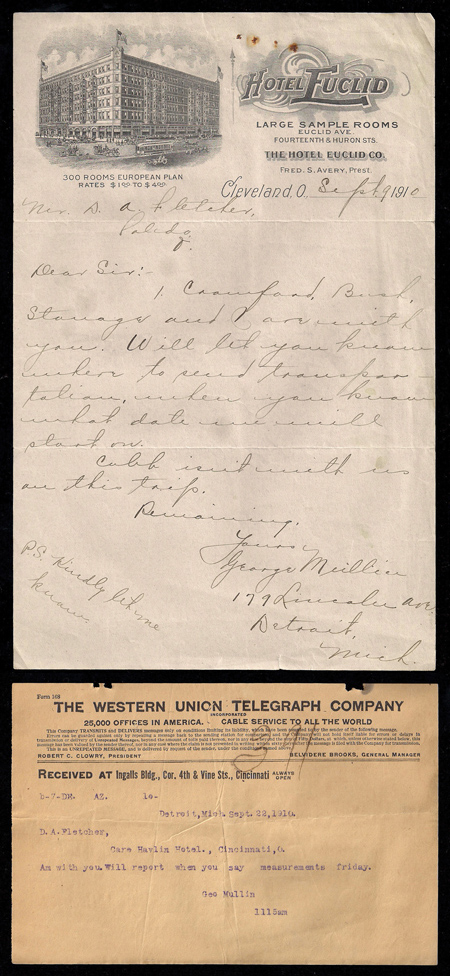 HOTEL EUCLID
LARGE SAMPLE ROOMS
EUCLID AVE.
FOURTEENTH & HURON STS.
THE HOTEL EUCLID CO.
FRED. S. AVERY, PREST.
300 ROOMS EUROPEAN PLAN
RATES $1.00 TO $4.00
Cleveland, O. Sept. 9 1910
Mr. D. A. Fletcher,
Toledo,
Dear Sir:-
1. Crawford, Bush,
Stanage and I are with
you. Will let you know
where to send transpor
tation, when you know
what date we will
start on.
Cobb isn't with us
on this trip.
Remaining,
Yours,
George Mullin
179 Lincoln Ave.
Detroit,
Mich.
P.S. Kindly let me
know
Form 168
THE WESTERN UNION TELEGRAPH COMPANY
INCORPORATED
25,000 OFFICES IN AMERICA. CABLE SERVICE TO ALL THE WORLD
This Company TRANSMITS and DELIVERS messages only on conditions limiting its liability, which have been assented to by the sender of the following message.
Errors can be guarded against only by repeating a message back to the sending station for comparison, and the Company will not hold itself liable for errors or delays in
transmission or delivery of Unrepeated Messages, beyond the amount of tolls paid thereon, nor in any case where the claim is not presented in writing within sixty days after the message is filed with the Company for transmission.
This is an UNREPEATED MESSAGE, and is delivered by request of the sender, under the conditions named above.
ROBERT C. CLOWRY, PRESIDENT BELVIDERE BROOKS, GENERAL MANAGER
RECEIVED AT Ingalls Bldg., Cor. 4th & Vine Sts., Cincinnati ALWAYS OPEN
b-7-DH. AZ. 10-
Detroit,Mich. Sept. 22,1910.
D.A.Fletcher,
Care Havlin Hotel., Cincinnati,O.
Am with you.Will report when you say measurements friday.
Geo Mullin
1115am